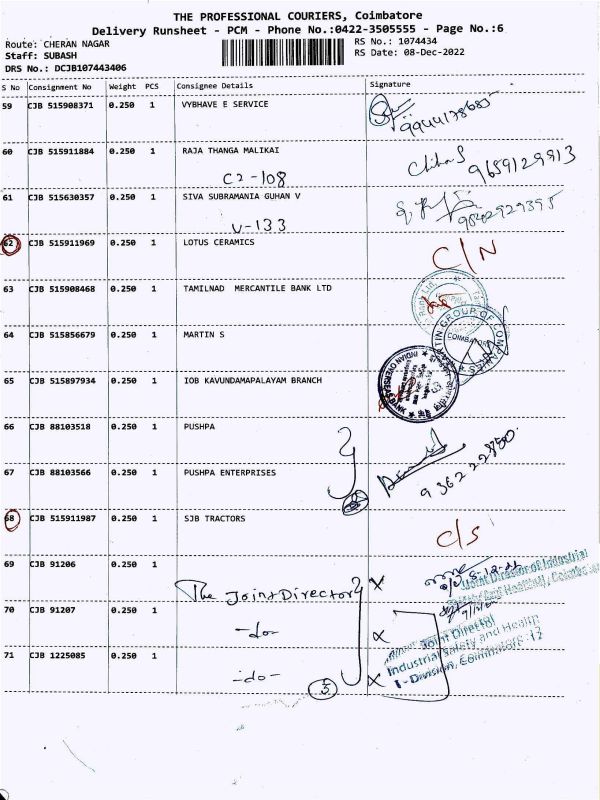 THE PROFESSIONAL COURIERS, Coimbatore
Delivery Runsheet - PCM - Phone No.:0422-3505555 - Page No.:6
Route: CHERAN NAGAR RS No.: 1074434
Staff: SUBASH RS Date: 08-Dec-2022
DRS No.: DCJB107443406
S No Consignment No Weight PCS Consignee Details Signature
59 CJB 515908371 0.250 1 VYBHAVE E SERVICE
9944178685
60 CJB 515911884 0.250 1 RAJA THANGA MALIKAI
C2-108 9659129913
61 CJB 515630357 0.250 1 SIVA SUBRAMANIA GUHAN V
V-133 9842929395
62 CJB 515911969 0.250 1 LOTUS CERAMICS C/N
63 CJB 515908468 0.250 1 TAMILNAD MERCANTILE BANK LTD
64 CJB 515856679 0.250 1 MARTIN S
MARTIN GROUP OF COMPANIES
COIMBATORE
65 CJB 515897934 0.250 1 IOB KAVUNDAMAPALAYAM BRANCH
INDIAN OVERSEAS BANK
66 CJB 88103518 0.250 1 PUSHPA
67 CJB 88103566 0.250 1 PUSHPA ENTERPRISES
9362222850
68 CJB 515911987 0.250 1 SJB TRACTORS C/S
69 CJB 91206 0.250 1
The Joint Director x
Joint Director of Industrial
Safety and Health, Coimbatore
70 CJB 91207 0.250 1
-do- x
Joint Director
Industrial Safety and Health
I-Division, Coimbatore-12
71 CJB 1225085 0.250 1
-do- x
3